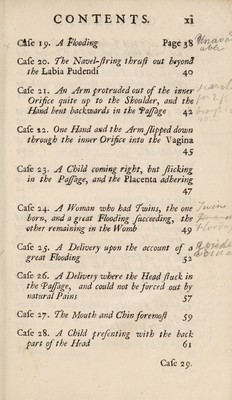 CONTENTS. xi
Caſe 19. A Flooding Page 38
Caſe 20. The Navel-ſtring thruſt out beyond
the Labia Pudendi 40
Caſe 21. An Arm protruded out of the inner
Orifice quite up to the Shoulder, and the
Hand bent backwards in the Paſſage 42
Caſe 22. One Hand and the Arm ſlipped down
through the inner Orifice into the Vagina
45
Caſe 23. A Child coming right, but ſticking
in the Paſſage, and the Placenta adhering
47
Caſe 24. A Woman who had Twins, the one
born, and a great Flooding ſucceeding, the
other remaining in the Womb 49
Twins
Caſe 25. A Delivery upon the account of a
great Flooding 52
Caſe 26. A Delivery where the Head ſtuck in
the Paſſage, and could not be forced out by
natural Pains 57
Caſe 27. The Mouth and Chin foremoſt 59
Caſe 28. A Child preſenting with the back
part of the Head 61
Caſe 29.